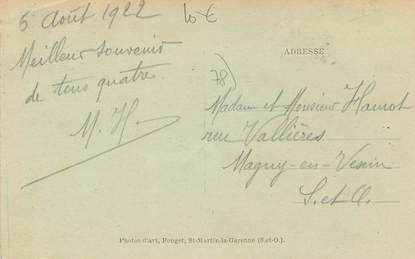 5 Août 1922
10 €
Meilleur souvenir
de tous quatre
M. H.
ADRESSE
78)
Madame et Monsieur Hamot
rue Vallières
Magny-en-Vexin
S. et O.
Photos d'art, Pouget, St-Martin-la-Garenne (S.-et-O.).